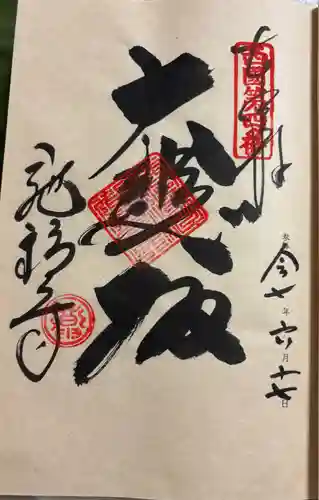 奉拝
西国第四番
令七年六月十七日
大悲殿
施福寺